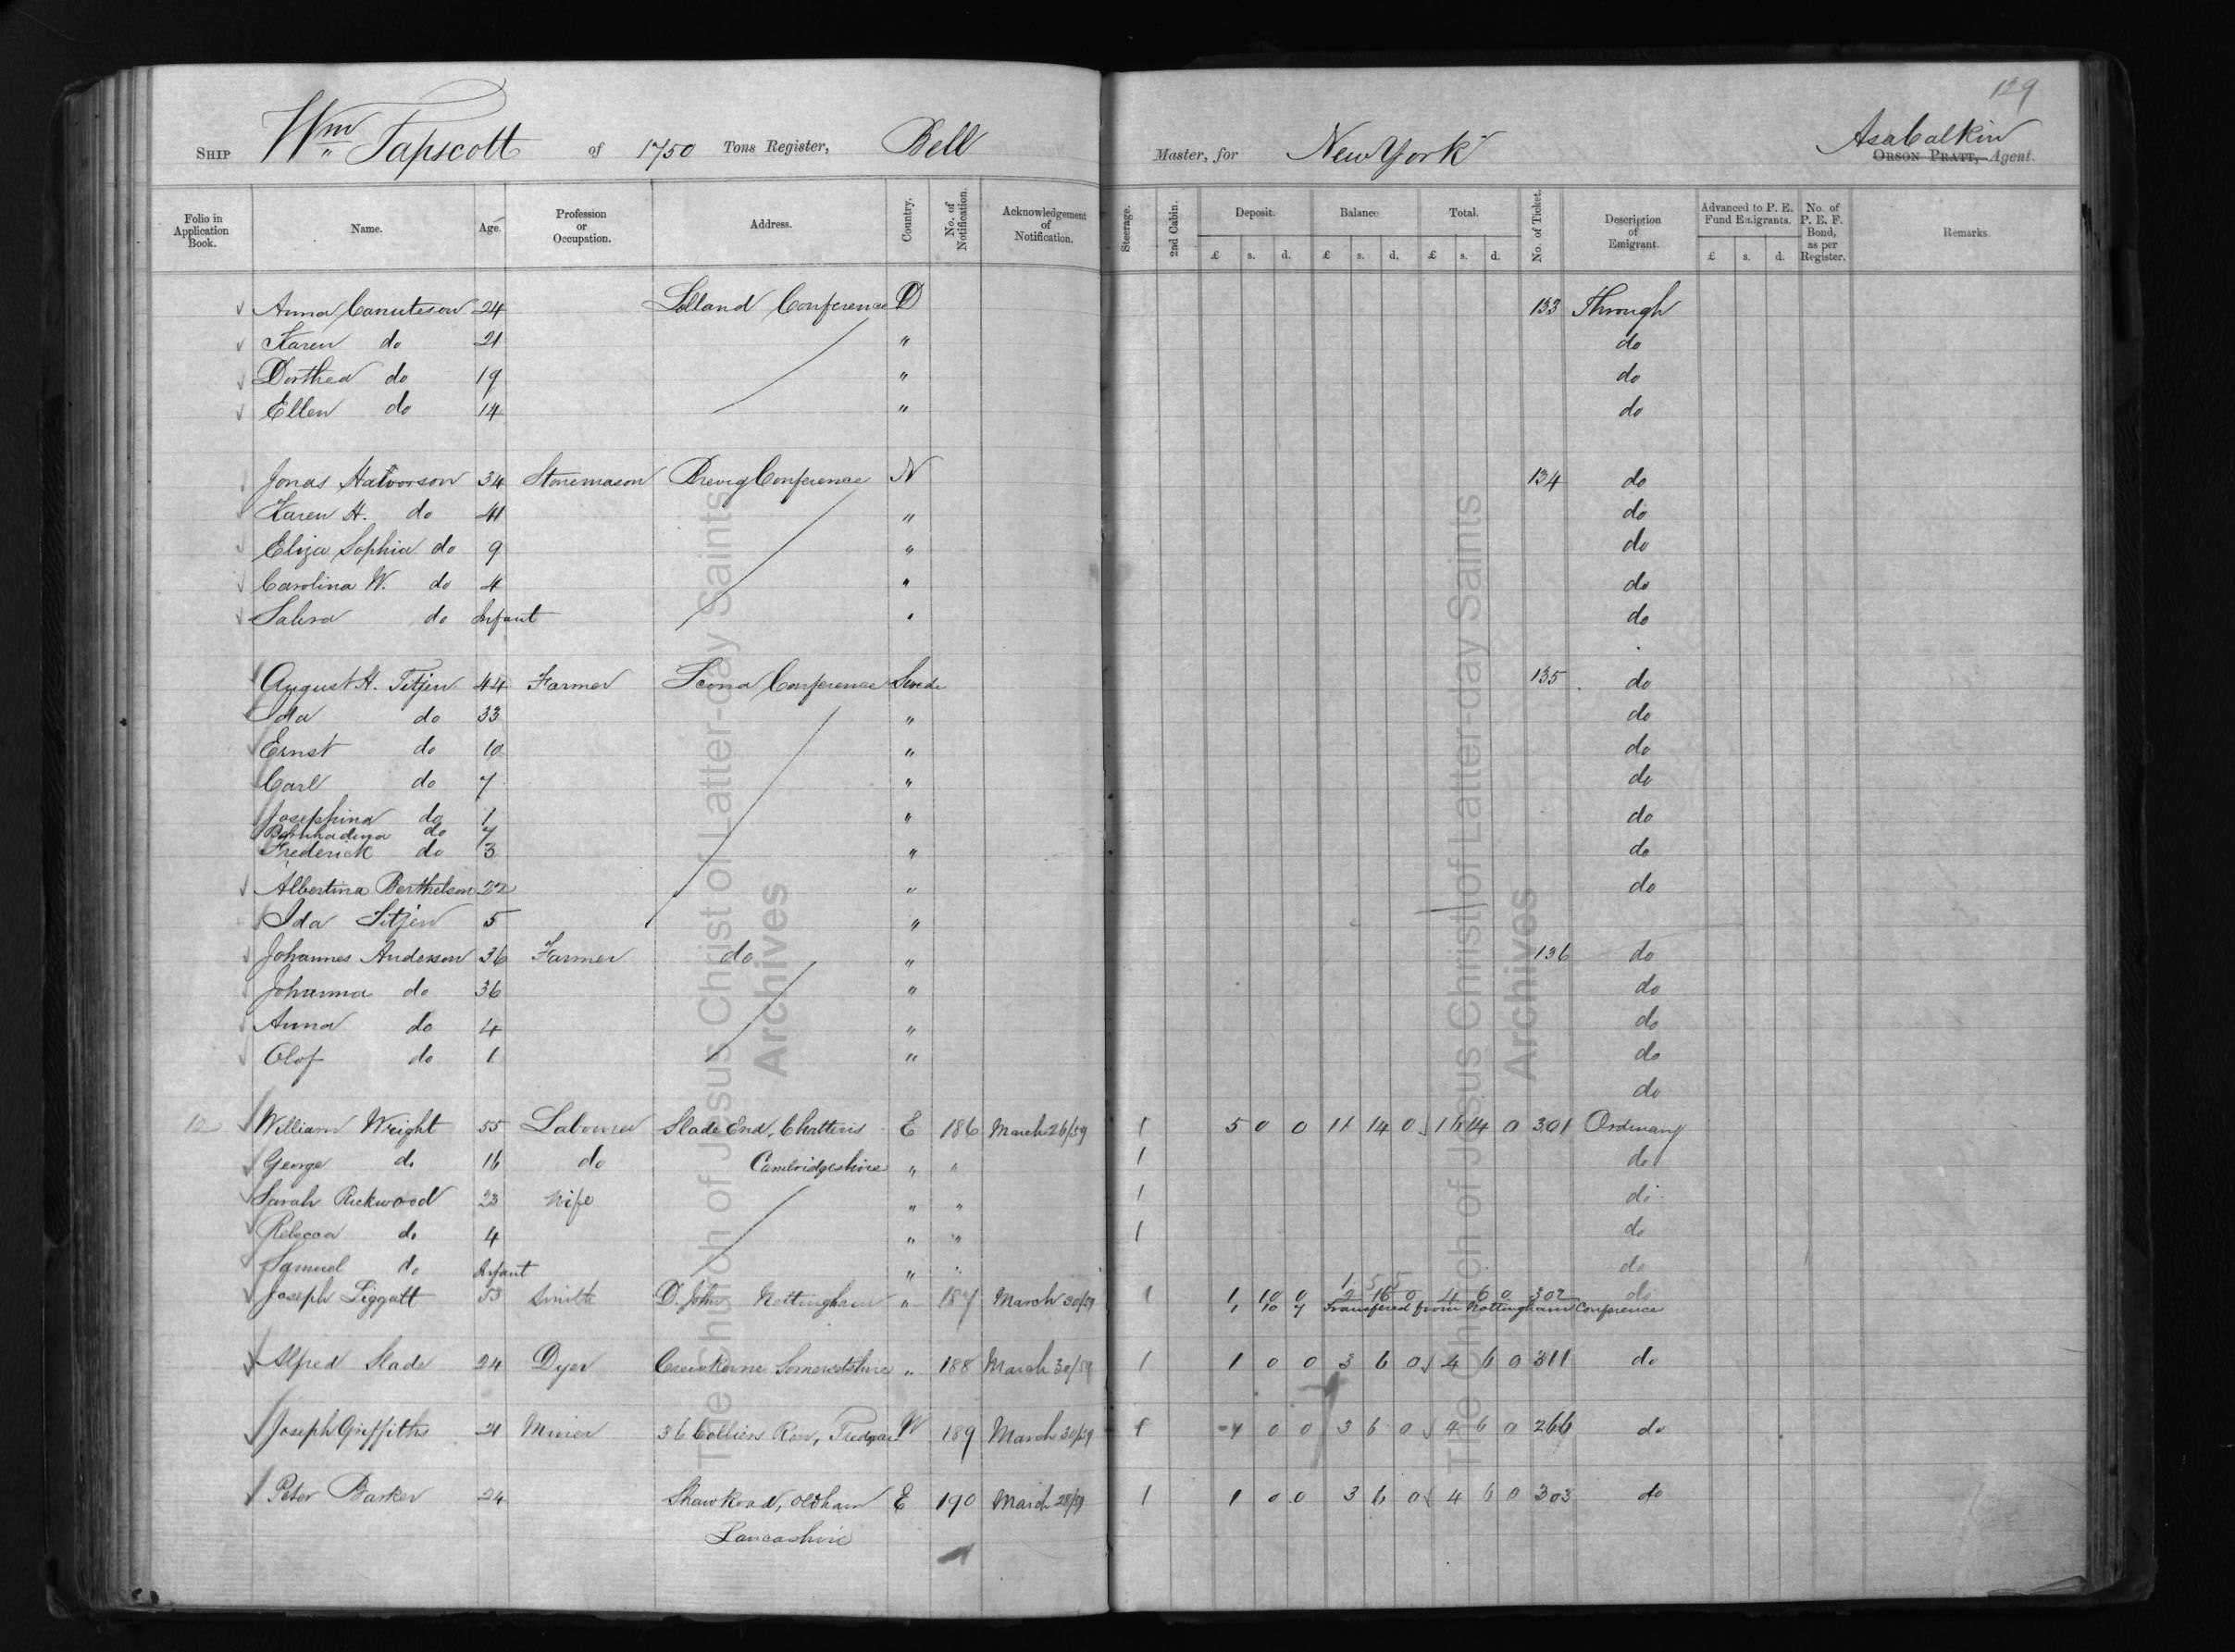 129
SHIP Wm Tapscott of 1750 Tons Register, Bell Master, for New York Asa Calkin ORSON PRATT, Agent.
Folio in Application Book. Name. Age. Profession or Occupation. Address. Country. No. of Notification. Acknowledgement of Notification. Steerage. 2nd Cabin. Deposit. Balance Total. No. of Ticket. Description of Emigrant. Advanced to P. E. Fund Emigrants. No. of P. E. F. Bond, as per Register. Remarks.
£ s. d. £ s. d. £ s. d. £ s. d.
Anna Canuteson 24 Lolland Conference D 133 Through
Karen do 21 " do
Dorthea do 19 " do
Ellen do 14 " do
Jonas Halvorson 34 Stonemason Brevig Conference N 134 do
Karen H. do 41 " do
Eliza Sophia do 9 " do
Carolina W. do 4 " do
do Infant " do
August H. Titjen 44 Farmer Scona Conference Swede 135 do
Ida do 33 " do
Ernst do 10 " do
Carl do 7 " do
Josephina do 1 " do
do 7
Frederick do 3 " do
Albertina Berthelson 22 " do
Ida Titjen 5 "
Johannes Anderson 36 Farmer do " 136 do
Johanna do 36 " do
Anna do 4 " do
Olof do 1 " do
do
12 William Wright 55 Labourer Slade End, Chatteris E 186 March 26/59 1 5 0 0 11 14 0 16 14 0 301 Ordinary
George do 16 do Cambridgeshire " " 1 do
Sarah Rickwood 23 Wife " " 1 do
Rebecca do 4 " " 1 do
Samuel do Infant " " do
Joseph Liggatt 53 Smith Nottingham " 187 March 30/59 1 1 10 0 2 16 0 4 6 0 302 do
1 10 7 Transfered from Nottingham Conference
Alfred Slade 24 Dyer Crewkerne Somersetshire " 188 March 30/59 1 1 0 0 3 6 0 4 6 0 311 do
Joseph Griffiths 21 Miner 36 Colliers Row, W 189 March 30/59 1 0 0 3 6 0 4 6 0 266 do
Peter Barker 24 Shaw Road, Oldham E 190 March 28/59 1 1 0 0 3 6 0 4 6 0 303 do
Lancashire
The Church of Jesus Christ of Latter-day Saints
Archives
The Church of Jesus Christ of Latter-day Saints
Archives